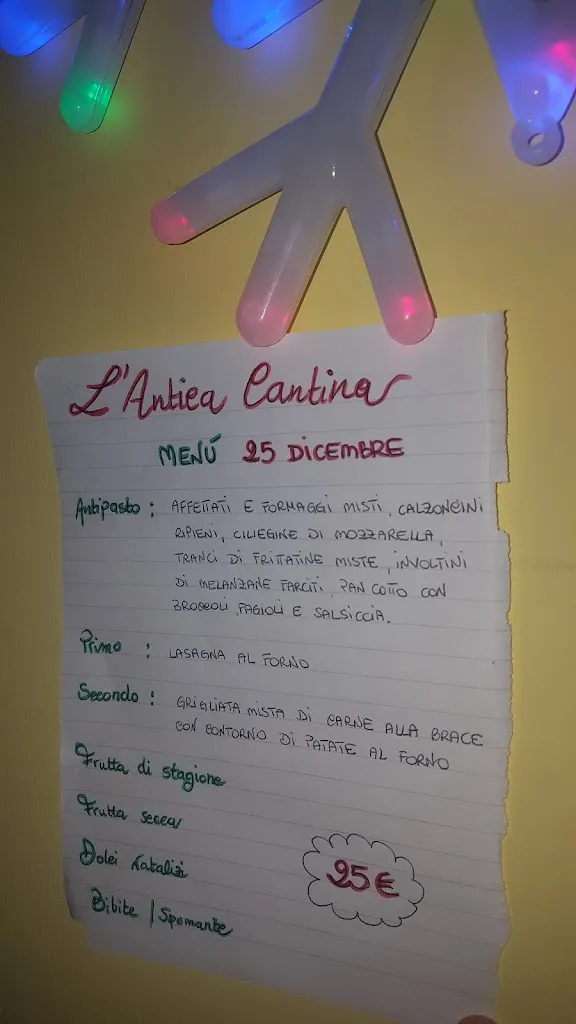 L'Antica Cantina
MENÚ 25 DICEMBRE
Antipasto : AFFETTATI E FORMAGGI MISTI, CALZONCINI
RIPIENI, CILIEGINE DI MOZZARELLA,
TRANCI DI FRITTATINE MISTE, INVOLTINI
DI MELANZANE FARCITI, PAN COTTO CON
BROCCOLI, FAGIOLI E SALSICCIA.
Primo : LASAGNA AL FORNO
Secondo : GRIGLIATA MISTA DI CARNE ALLA BRACE
CON CONTORNO DI PATATE AL FORNO
Frutta di stagione
Frutta secca
Dolci Natalizi
Bibite / Spumante
25€